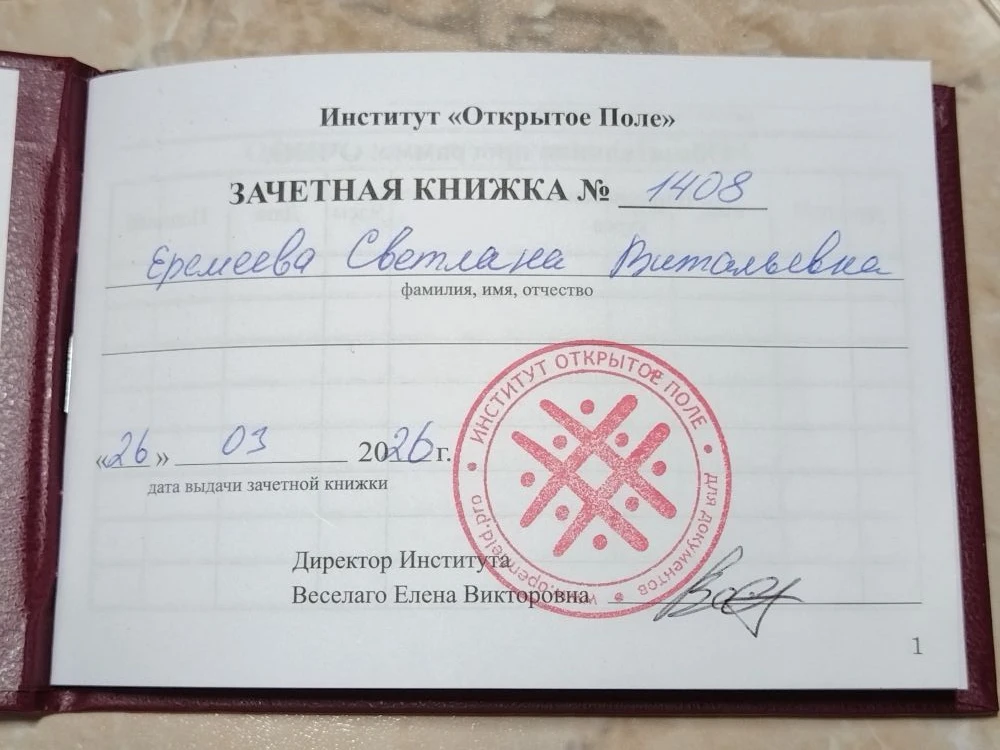 Институт «Открытое Поле»
ЗАЧЕТНАЯ КНИЖКА № 1408
Еремеева Светлана Витальевна
фамилия, имя, отчество
«26» 03 2026 г.
дата выдачи зачетной книжки
ИНСТИТУТ ОТКРЫТОЕ ПОЛЕ
для документов
Директор Института
Веселаго Елена Викторовна
1